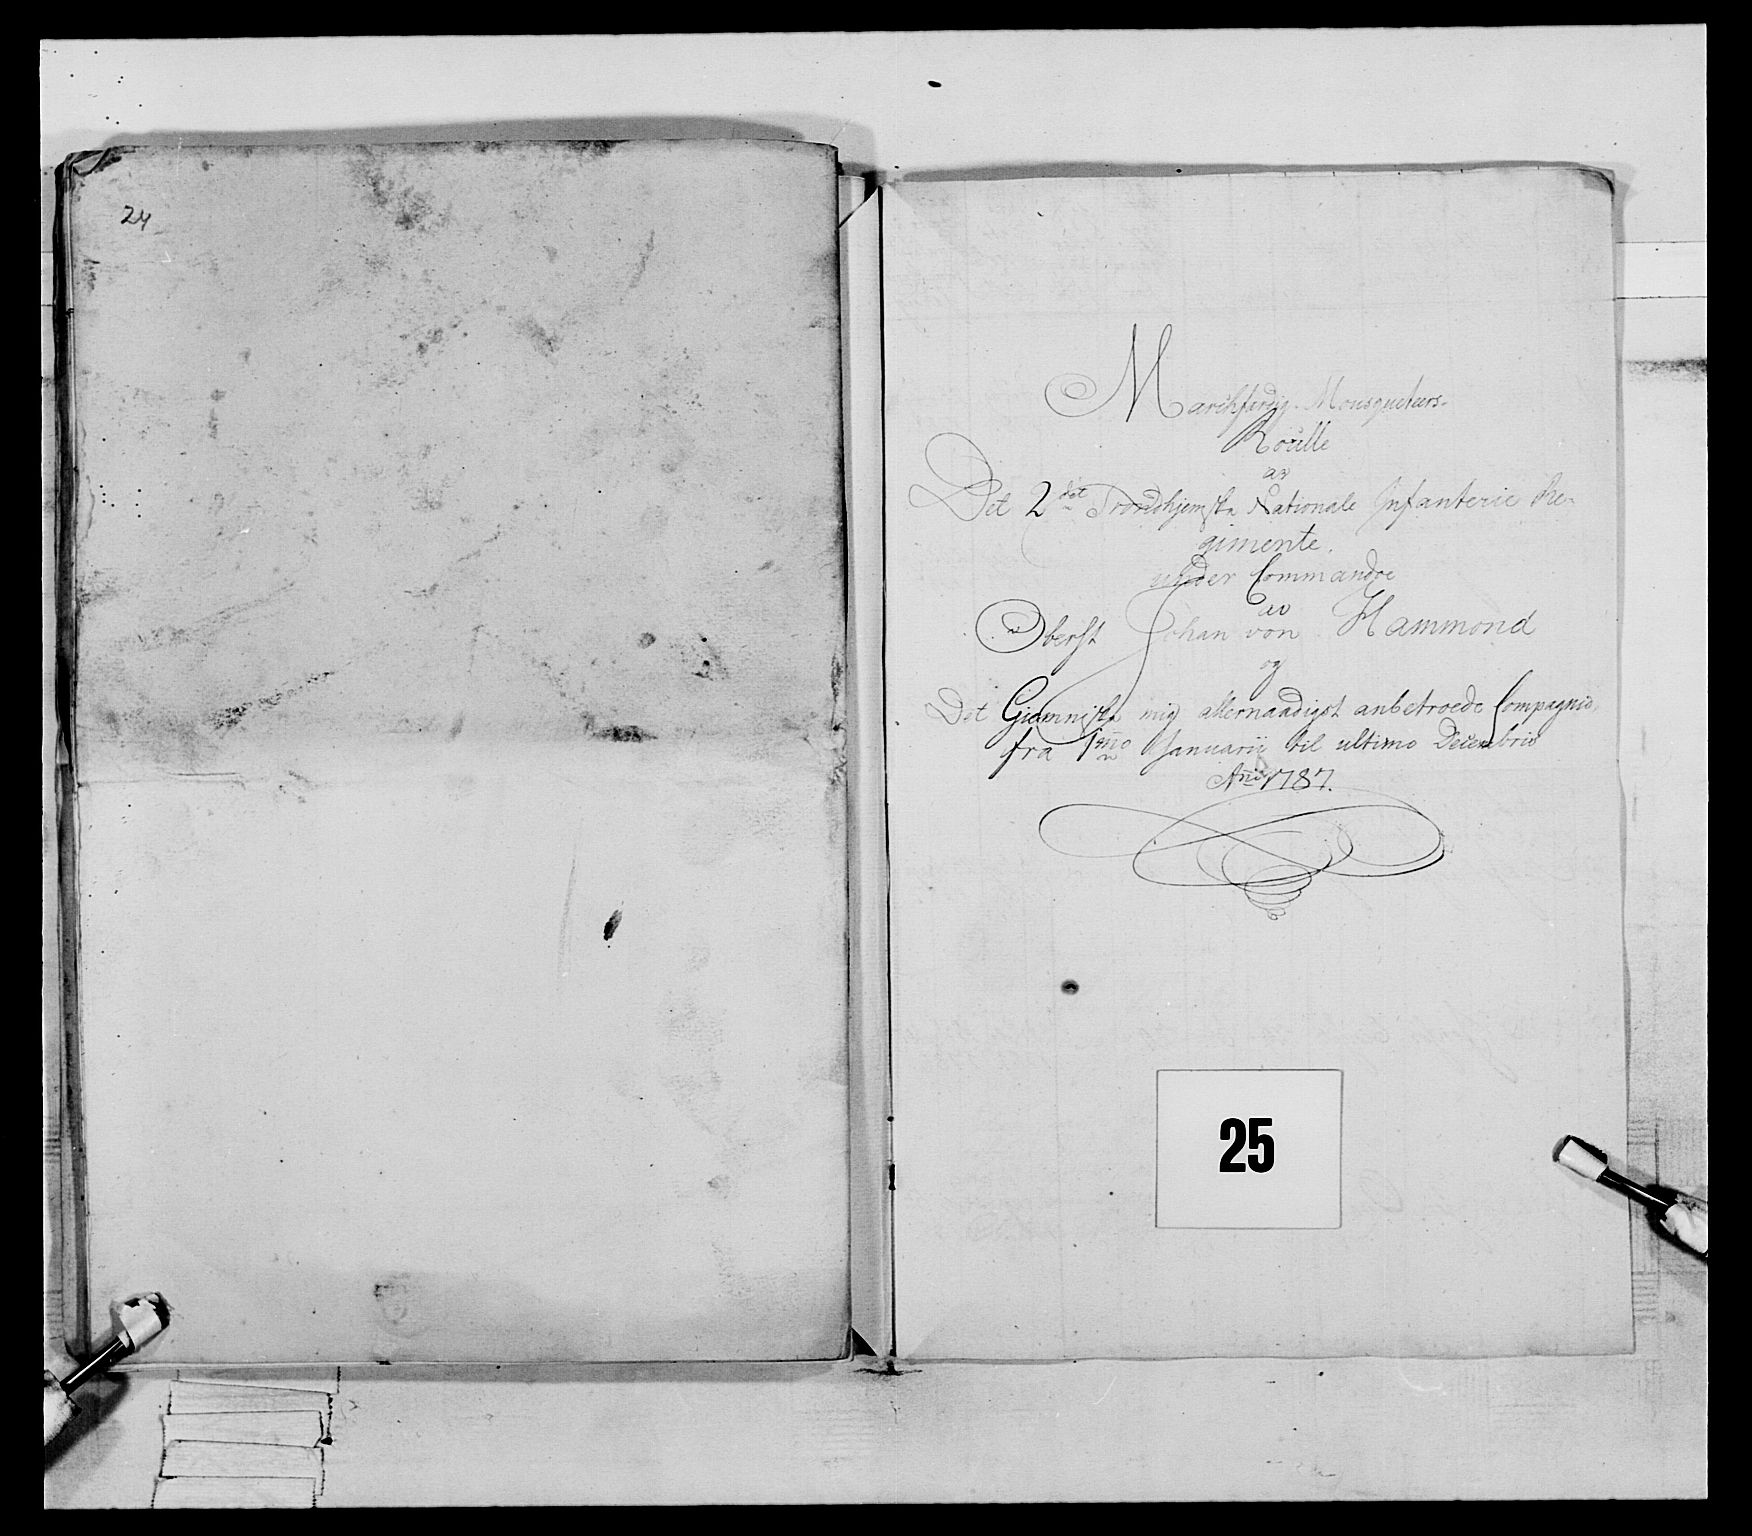 24
Marchferdig Mousqueteers-
Roulle
av
Det 2det Trondhjemske Nationale Infanterie Re-
gimente.
under Commando
av
Oberst Johan von Hammond
og
Det Giemniske mig allernaadigst anbetroede Compagnie,
fra 1mo Januarii til ultimo Decembris
Año 1787.
25